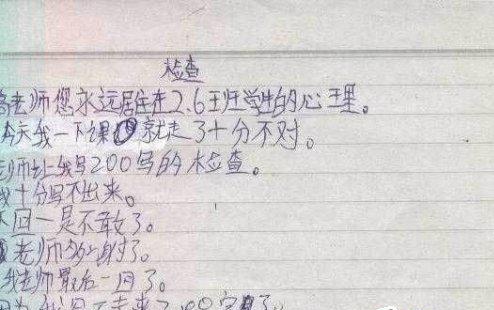 检查
老师您永远居住在2.6班学生的心理。
今天我一下课就走了十分不对。
老师让我写200写的检查。
我十分写不出来。
下回一是不敢了。
老师谢了。
我老师最后一回了。
因为我